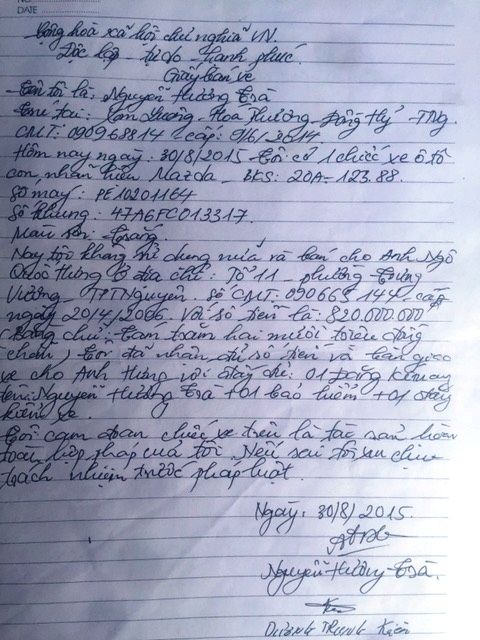 DATE
Cộng hoà xã hội chủ nghĩa VN.
Độc lập - tự do - hạnh phúc.
Giấy bán xe
Tên tôi là: Nguyễn Hương Trà
Trú tại: Tam Hương - Hoá Thượng - Đồng Hỷ - TNg.
CMT: 090968814 cấp: 9/6/2014
Hôm nay ngày: 30/8/2015 Tôi có 1 chiếc xe ô tô
con, nhãn hiệu Mazda - BKS: 20A-123.88.
Số máy: PE10201164
Số khung: 47A6FC013317.
Màu sơn: Trắng
Nay tôi không sử dụng nữa và bán cho Anh Ngô
Quốc Hưng ở địa chỉ: Tổ 11 - phường Trưng
Vương - TPTNguyên. Số CMT: 090665144 cấp
ngày 20/4/2006. Với số tiền là: 820.000.000
(Bằng chữ: Tám trăm hai mươi triệu đồng
chẵn) Tôi đã nhận đủ số tiền và bàn giao
xe cho Anh Hưng với giấy tờ: 01 Đăng ký mang
tên: Nguyễn Hương Trà + 01 bảo hiểm + 01 đăng
kiểm xe.
Tôi cam đoan chiếc xe trên là tài sản hoàn
toàn hợp pháp của tôi. Nếu sai tôi xin chịu
trách nhiệm trước pháp luật.
Ngày: 30/8/2015.
Nguyễn Hương Trà.
DƯƠNG TRUNG KIÊN